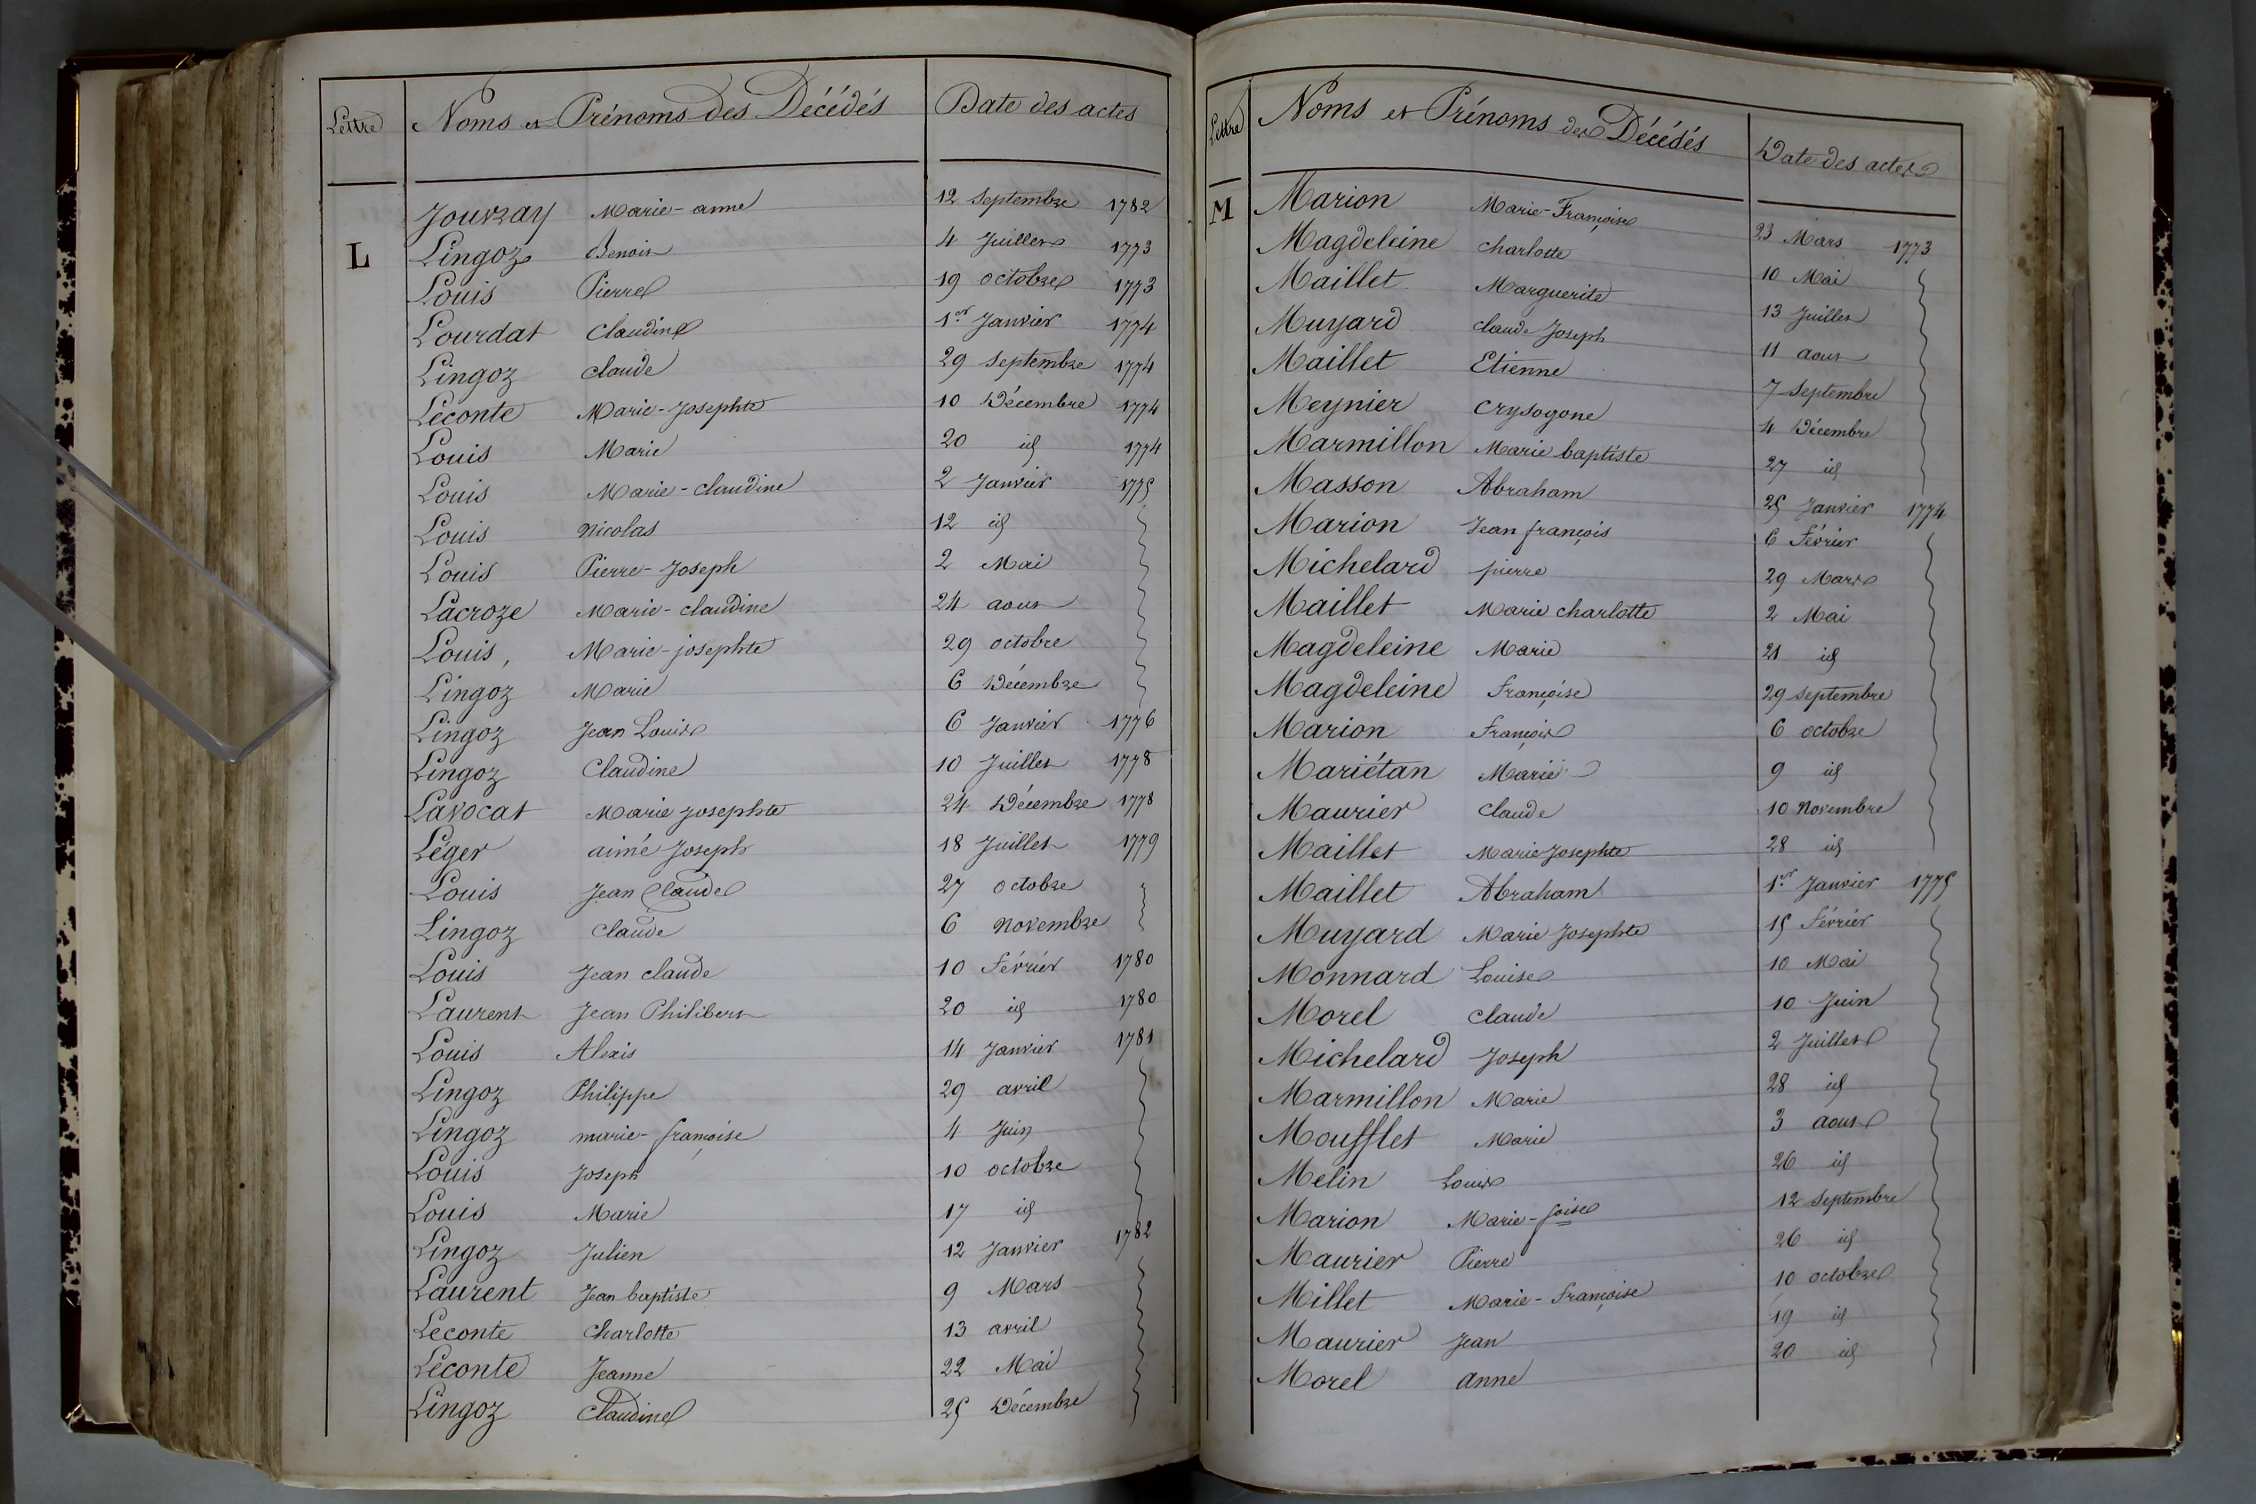 Lettre Noms et Prénoms des Décédés Date des actes
Jouvray Marie-anne 12 Septembre 1782
L Lingoz Benoit 4 Juillet 1773
Louis Pierre 19 octobre 1773
Lourdat Claudine 1er Janvier 1774
Lingoz Claude 29 Septembre 1774
Leconte Marie-Josephte 10 Décembre 1774
Louis Marie 20 id 1774
Louis Marie-claudine 2 Janvier 1775
Louis Nicolas 12 id
Louis Pierre-Joseph 2 Mai
Lacroze Marie-claudine 24 aout
Louis, Marie-josephte 29 octobre
Lingoz Marie 6 Décembre
Lingoz Jean Louis 6 Janvier 1776
Lingoz Claudine 10 Juillet 1778
Lavocat Marie Josephte 24 Décembre 1778
Léger aimé Joseph 18 Juillet 1779
Louis Jean Claude 27 octobre
Lingoz Claude 6 Novembre
Louis Jean claude 10 Février 1780
Laurent Jean Philibert 20 id 1780
Louis Alexis 14 Janvier 1781
Lingoz Philippe 29 avril
Lingoz marie-françoise 4 Juin
Louis Joseph 10 octobre
Louis Marie 17 id
Lingoz Julien 12 Janvier 1782
Laurent Jean baptiste 9 Mars
Leconte Charlotte 13 avril
Leconte Jeanne 22 Mai
Lingoz Claudine 25 Décembre
Lettre Noms et Prénoms des Décédés Date des actes
M Marion Marie-Françoise 23 Mars 1773
Magdeleine Charlotte 10 Mai
Maillet Marguerite 13 Juillet
Muyard claude Joseph 11 aout
Maillet Etienne 7 Septembre
Meynier Crysogone 4 Décembre
Marmillon Marie baptiste 27 id
Masson Abraham 25 Janvier 1774
Marion Jean françois 6 Février
Michelard pierre 29 Mars
Maillet Marie charlotte 2 Mai
Magdeleine Marie 21 id
Magdeleine Françoise 29 septembre
Marion François 6 octobre
Mariétan Marie 9 id
Maurier Claude 10 Novembre
Maillet Marie Josephte 28 id
Maillet Abraham 1er Janvier 1775
Muyard Marie Josephte 15 Février
Monnard Louise 10 Mai
Morel Claude 10 Juin
Michelard Joseph 2 Juillet
Marmillon Marie 28 id
Moufflet Marie 3 aout
Melin Louis 26 id
Marion Marie-foise 12 Septembre
Maurier Pierre 26 id
Millet Marie-Françoise 10 octobre
Maurier Jean 19 id
Morel anne 20 id